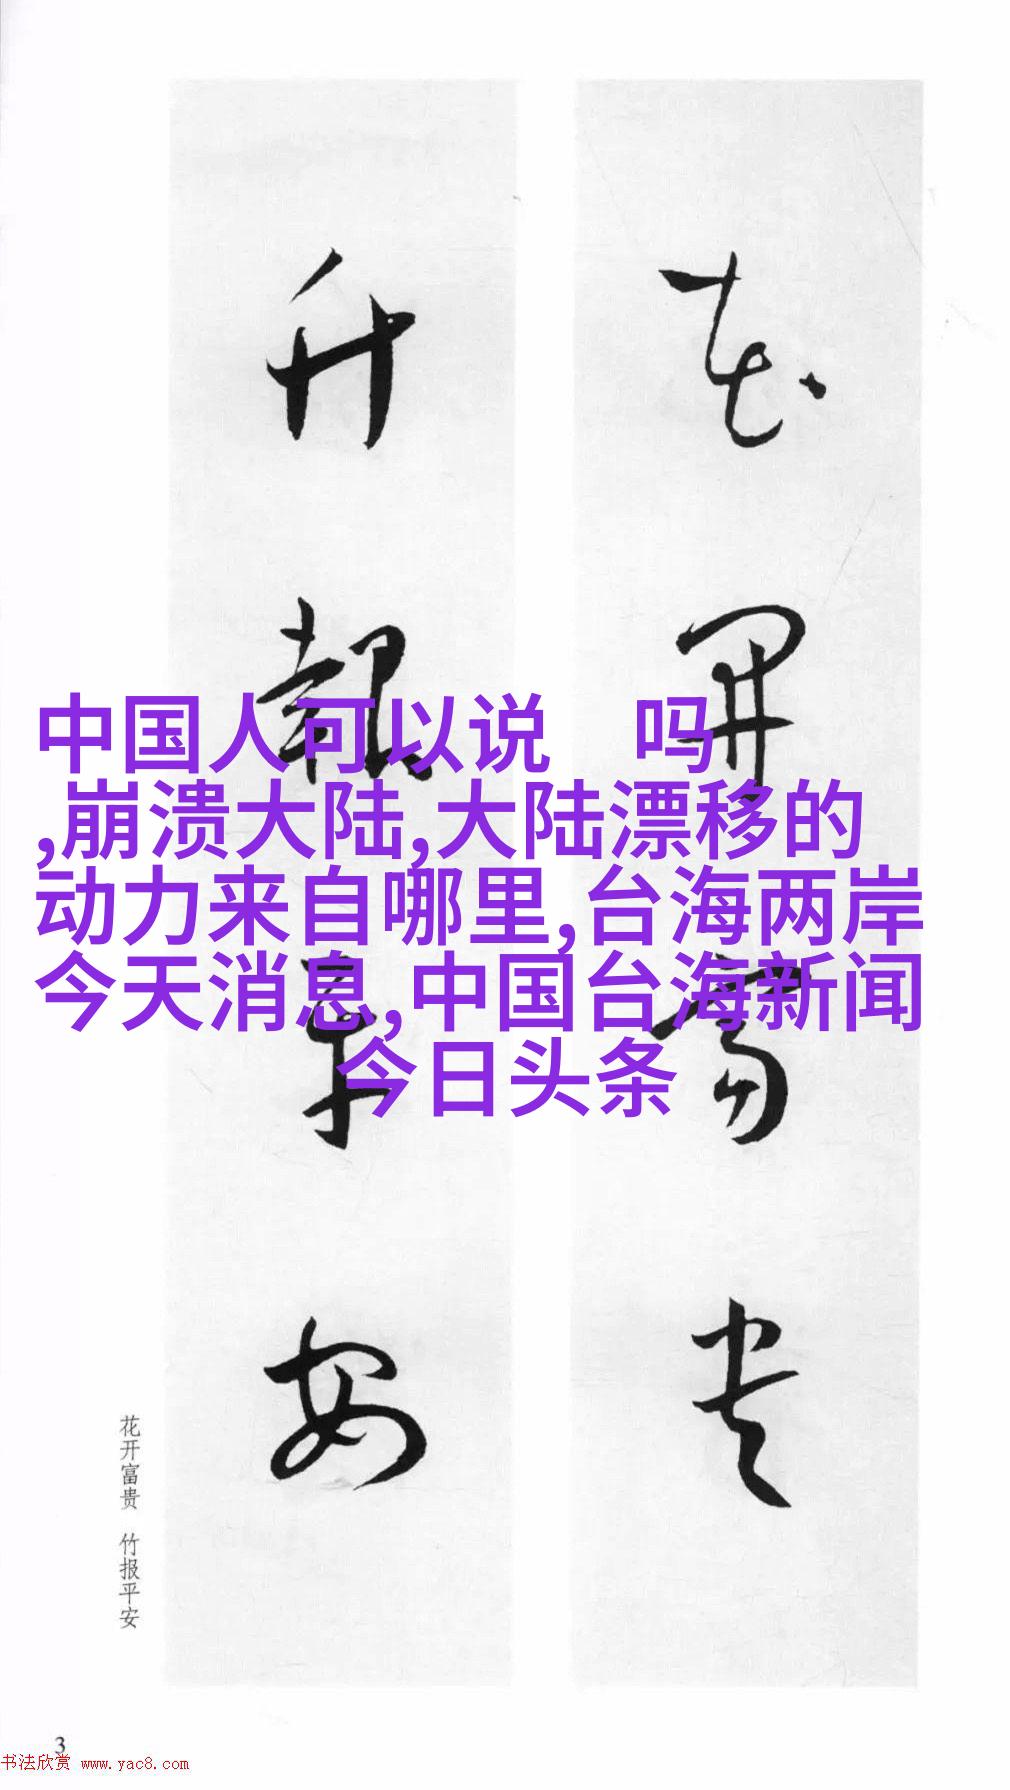 中国人可以说 吗
,崩溃大陆,大陆漂移的
动力来自哪里,台海两岸
今天消息,中国台海新闻
今日头条
花开富贵
竹报平安
花开富贵 竹报平安
3
书法欣赏 www.yac8.com